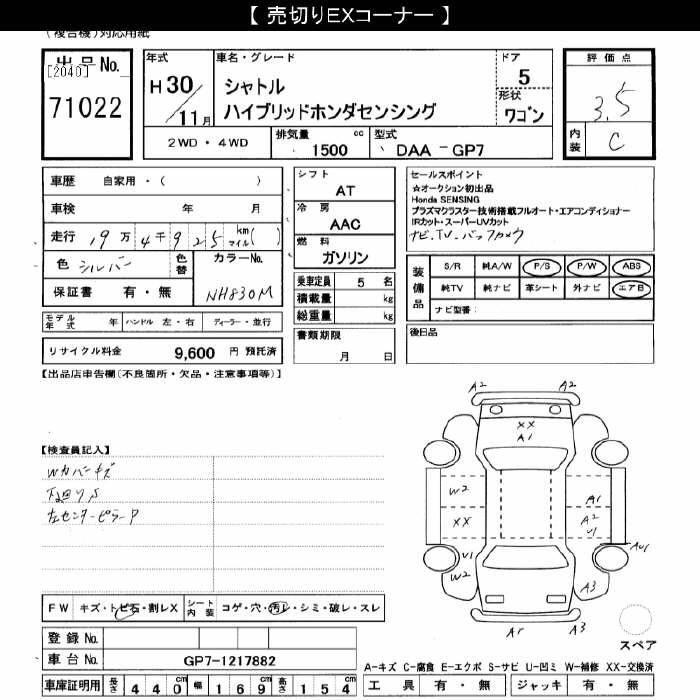 【 売切りEXコーナー 】
(複合機)対応用紙
出品No.
[2040]
71022
年式
H30/11月
車名・グレード
シャトル
ハイブリッドホンダセンシング
ドア
5
形状
ワゴン
評価点
3.5
内装
C
2WD・4WD
排気量 cc
1500
型式
DAA-GP7
車歴 自家用・( )
車検 年 月
走行 19万4千925 km マイル( )
色 シルバー
色替
カラーNo.
NH830M
保証書 有・無
シフト
AT
冷房
AAC
燃料
ガソリン
乗車定員 5 名
積載量 kg
総重量 kg
書類期限
月 日
セールスポイント
☆オークション初出品
Honda SENSING
プラズマクラスター技術搭載フルオート・エアコンディショナー
IRカット・スーパーUVカット
ナビ.TV.バックカメラ
装備品
S/R 純A/W P/S P/W ABS
純TV 純ナビ 革シート 外ナビ エアB
ナビ型番:
後日品
モデル年式 年 ハンドル 左・右 ディーラー・並行
リサイクル料金 9,600 円 預託済
【出品店申告欄(不良箇所・欠品・注意事項等)】
【検査員記入】
Wカバーキズ
下廻りS
左センターピラーP
A2 A2
XX
A1
W2
XX
A1
A2
U1
AU1
U1
W2
A3
A1 A3
スペア
FW キズ・トビ石・割レX
シート内装 コゲ・穴・汚レ・シミ・破レ・スレ
登録No.
車台No. GP7-1217882
車庫証明用 長さ 440cm 幅 169cm 高さ 154cm
A-キズ C-腐食 E-エクボ S-サビ U-凹ミ W-補修 XX-交換済
工具 有・無 ジャッキ 有・無